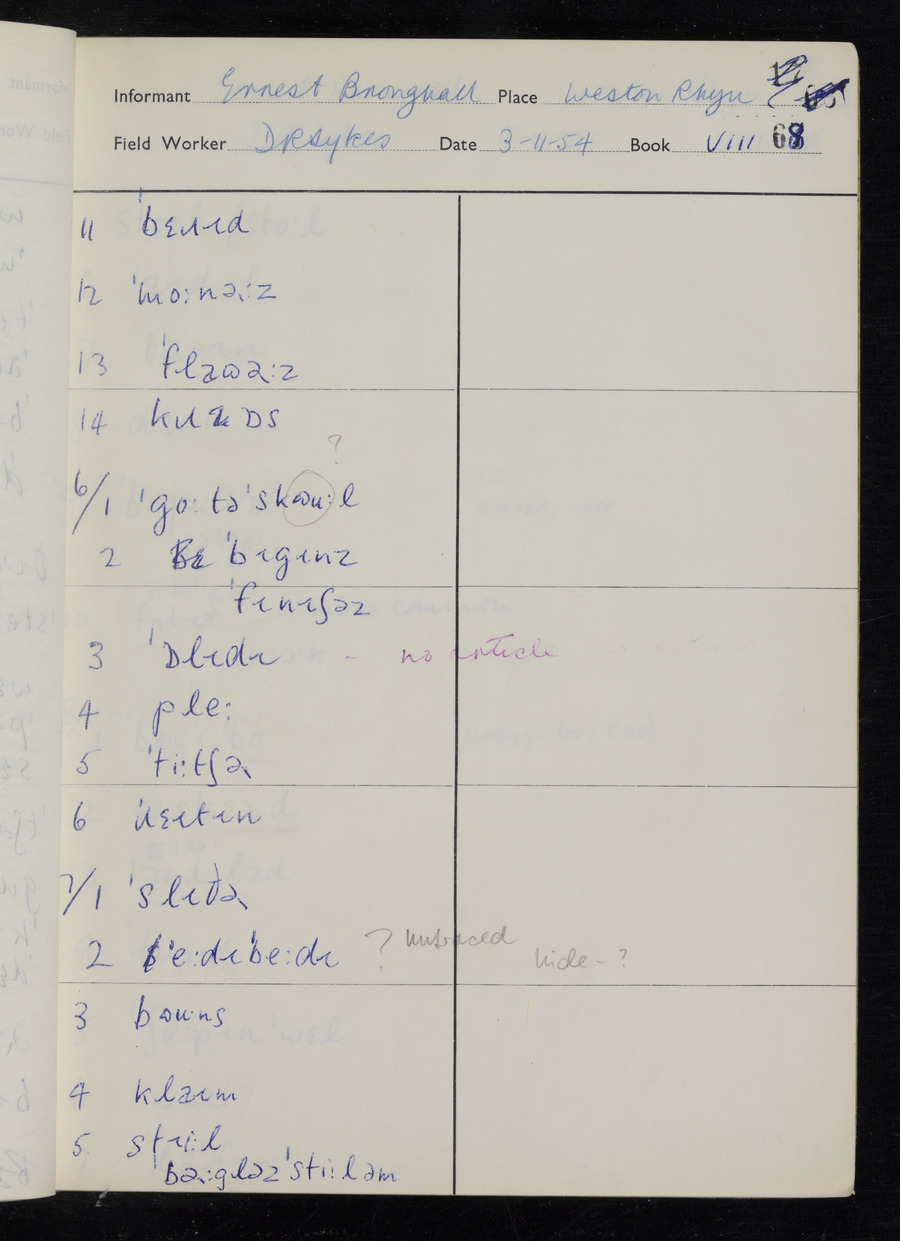 Informant Ernest Brongnall Place Weston Rhyn
Field Worker D R Sykes Date 3-11-54 Book VIII 68
11 ˈbɛɹɪd
12 ˈmɔ:nəɻ:z
13 ˈflaωəɻ:z
14 kɹɪ
?
6/1 ˈgo: tə ˈskωu:l
2 ˈbɪgɪnz
ˈfɪnɪʃəz
3 ˈɒlɪdɪ - no article
4 ple:
5 ˈti:tʃəɻ
6 ˈɹɛɪtɪn
7/1 ˈslɪðəɻ
2 ˈe:dɪˈbe:dɪ ? untraced
hide - ?
3 bωuns
4 klaɪm
5 stɪi:l
ˈbəɻ:gləz ˈsti:ləm